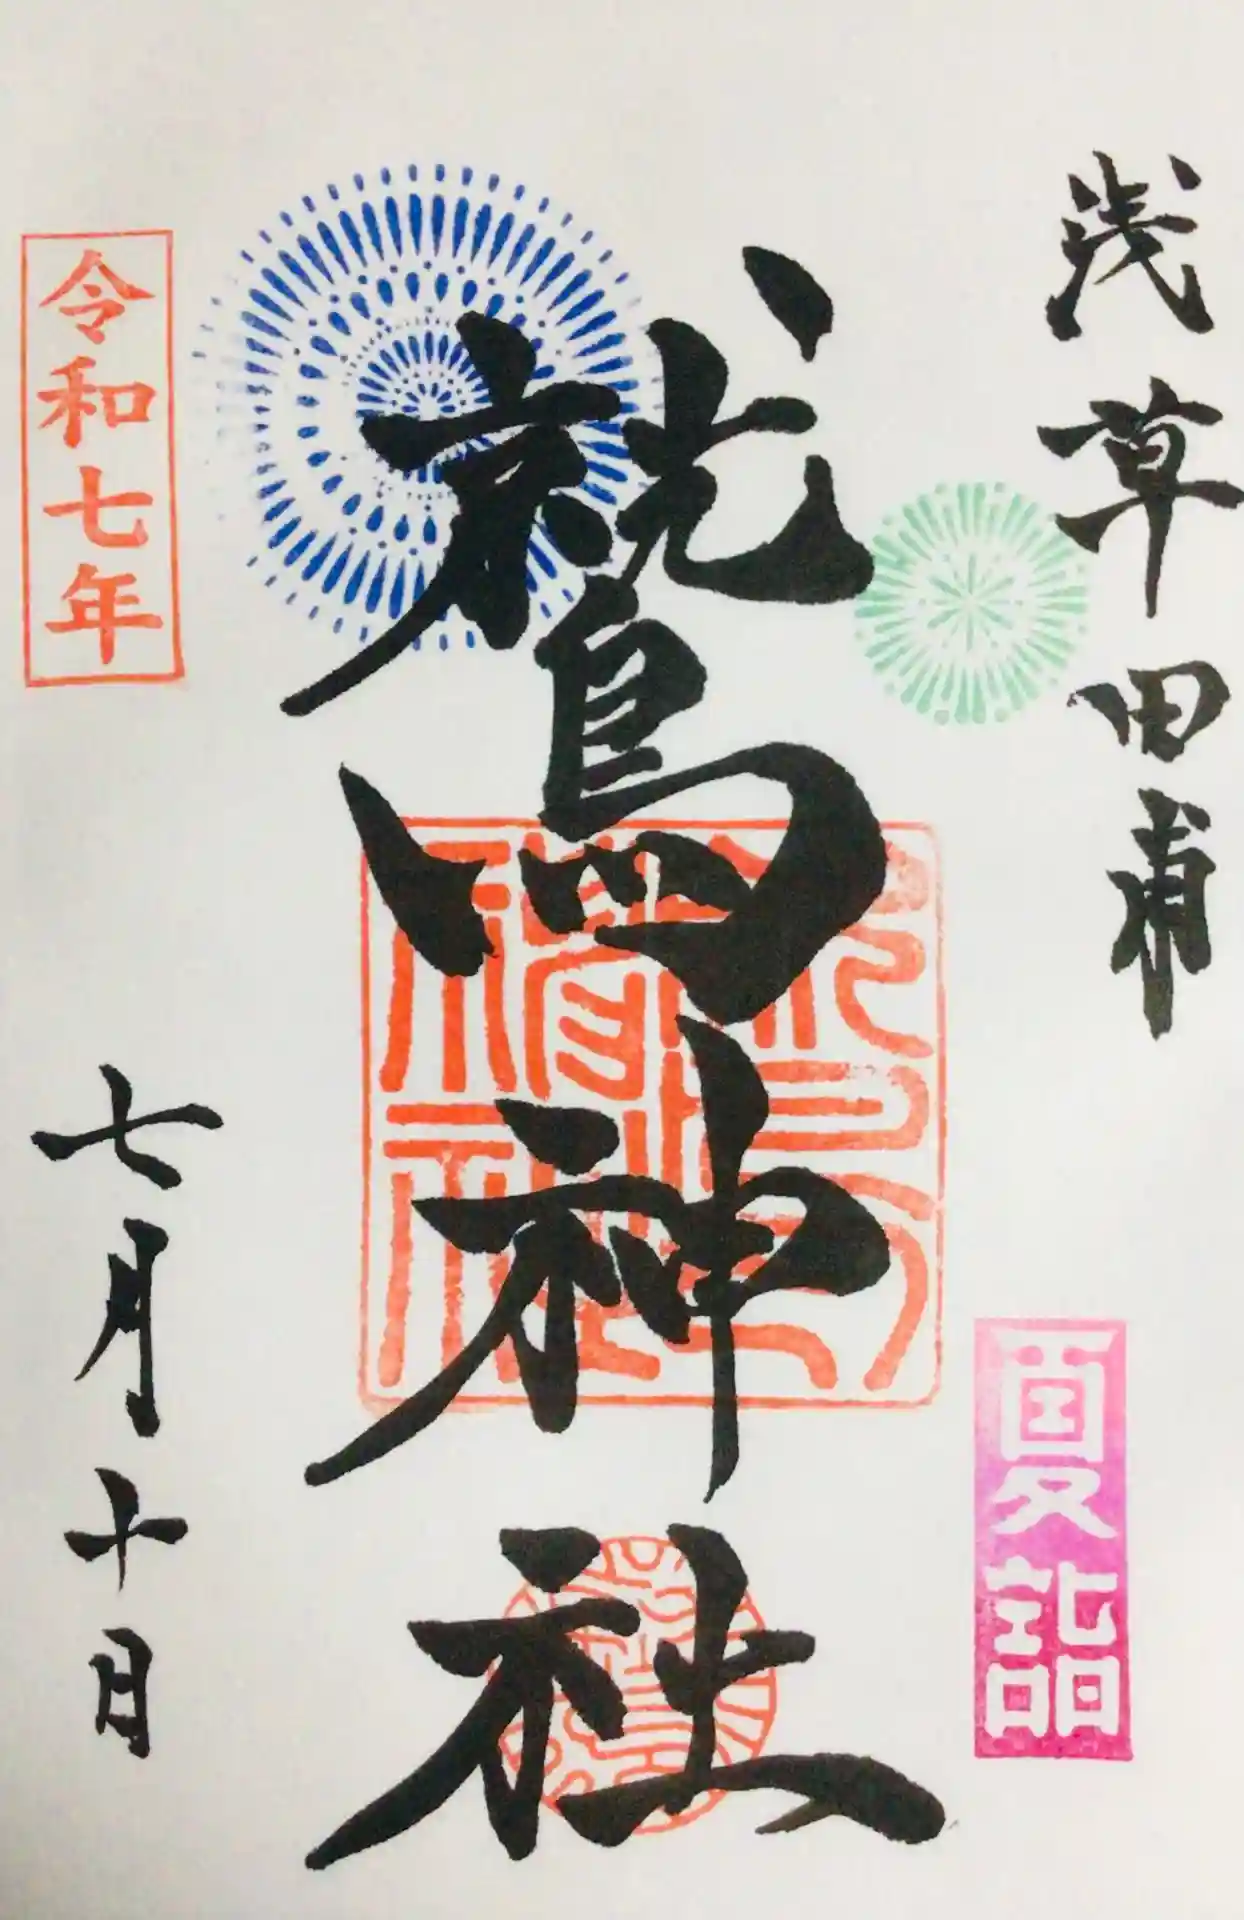 浅草田甫
夏詣
鷲神社
令和七年
七月十日